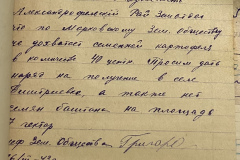 Александрофельский Рай Земотдел
что по Марковскому Зем. обществу
не хватает семенной картофеля
в количестве 40 цент. Просим дать
наряд на получение в селе
а также нет
семян баштана на площадь
7 гектар
Зем. Общества Григоро